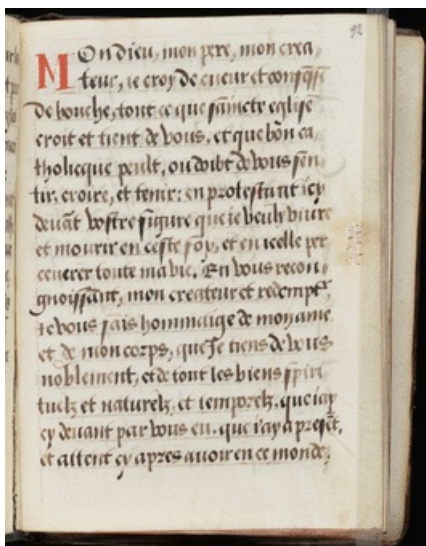 92
MOn dieu, mon pere, mon crea,
teur, ie croy de cueur et confesse
de bouche, tout ce que saincte eglise
croit et tient de vous, et que bon ca,
tholicque peult, ou doibt de vous sen,
tir, croire, et tenir: en protestant icy
devãt vostre figure que ie veulx vivre
et mourir en ceste foy, et en icelle per
ceverer toute ma vie. En vous recon,
gnoissant, mon createur et redempt͛,
ie vous fais hommaige de mon ame
et de mon corps, que Je tiens de vous
noblement, et de tout les biens spiri
tuelz et naturelz, et temporelz, que iay
cy devant par vous eu, que i'ay a presẽt,
et attent cy apres avoir en ce monde,